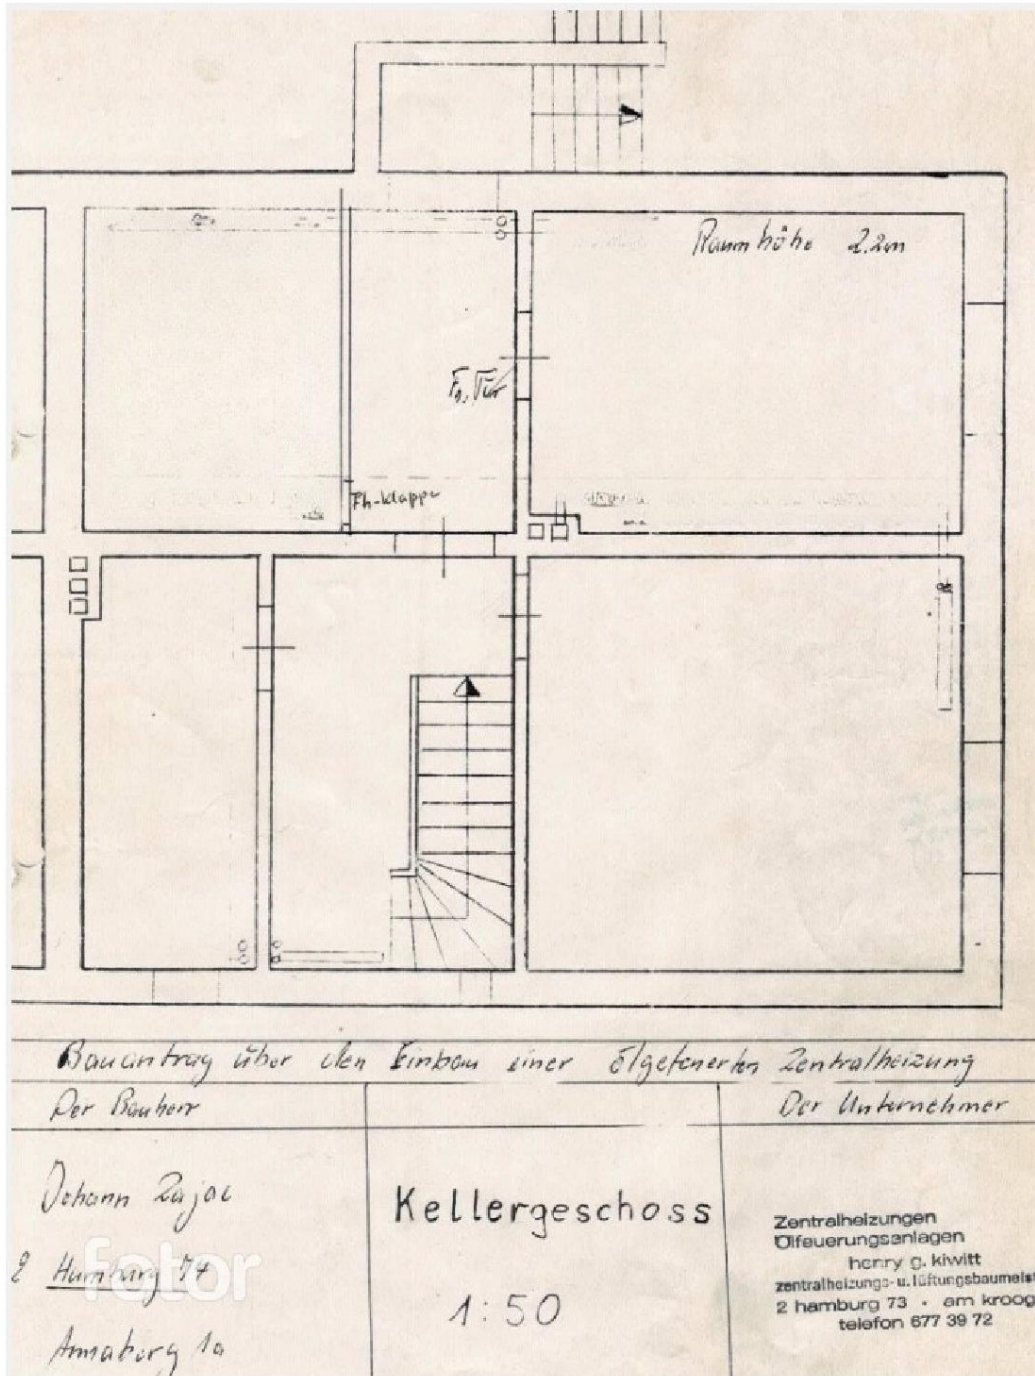 Raumhöhe 2.2m
Fh. Tür
Fh-klappe
Bauantrag über den Einbau einer ölgefeuerten Zentralheizung
Der Bauherr
Der Unternehmer
Johann Zajac
2 Hamburg 74
Annaberg 1a
Kellergeschoss
1:50
Zentralheizungen
Ölfeuerungsanlagen
henry g. kiwitt
zentralheizungs- u. lüftungsbaumeist
2 hamburg 73 · am kroog
telefon 677 39 72
fotor